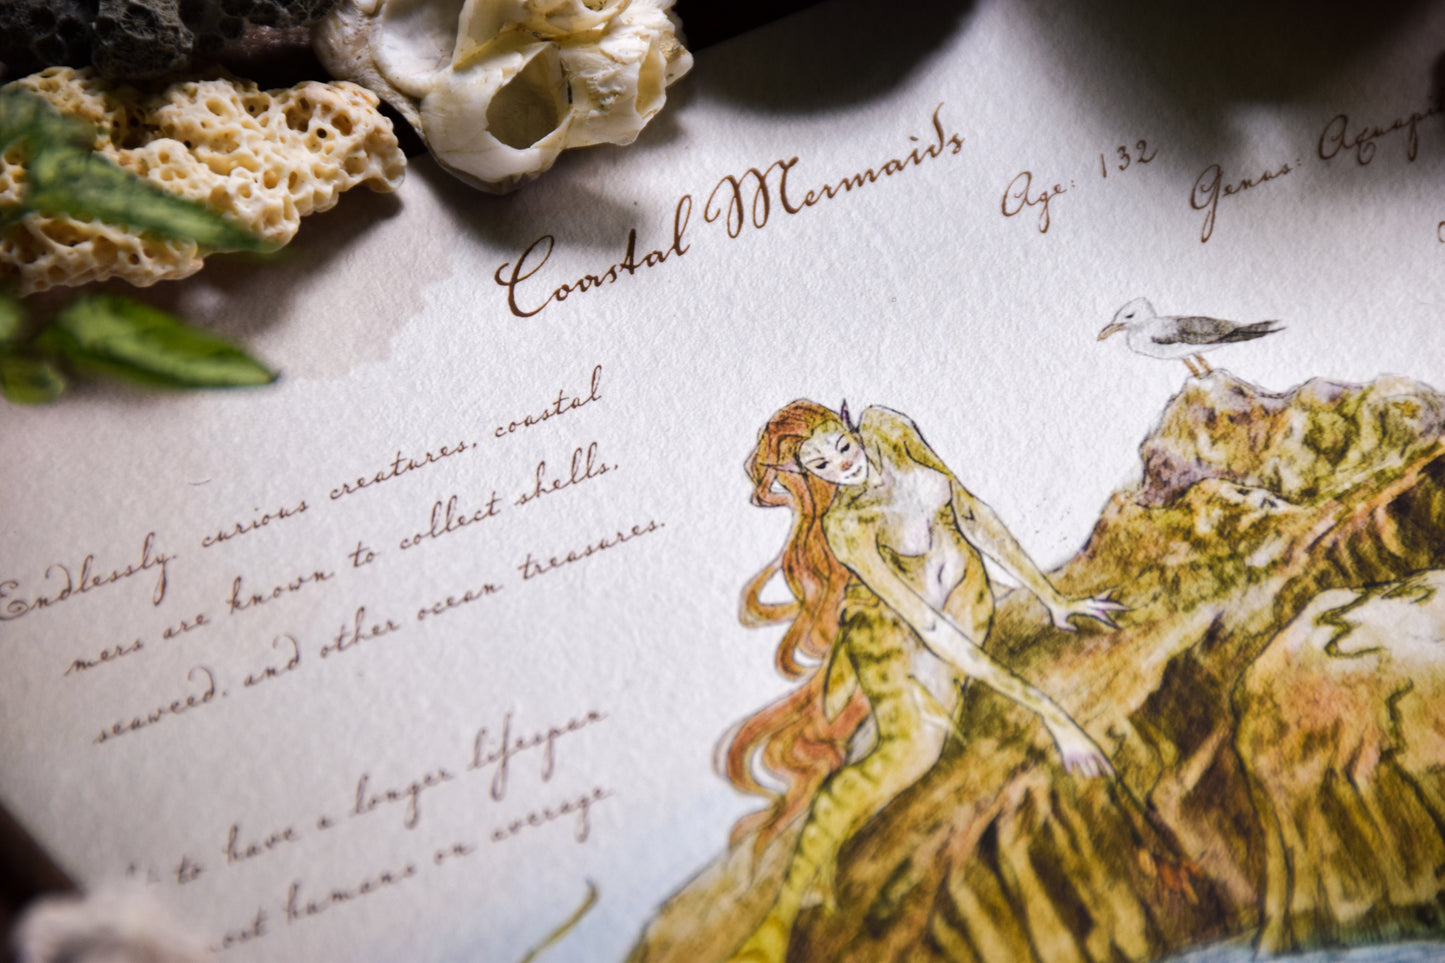 Coastal Mermaids
Age: 132
Genus:
Endlessly, curious creatures, coastal
mers are known to collect shells,
seaweed, and other ocean treasures.
to have a longer lifespan
humans on average